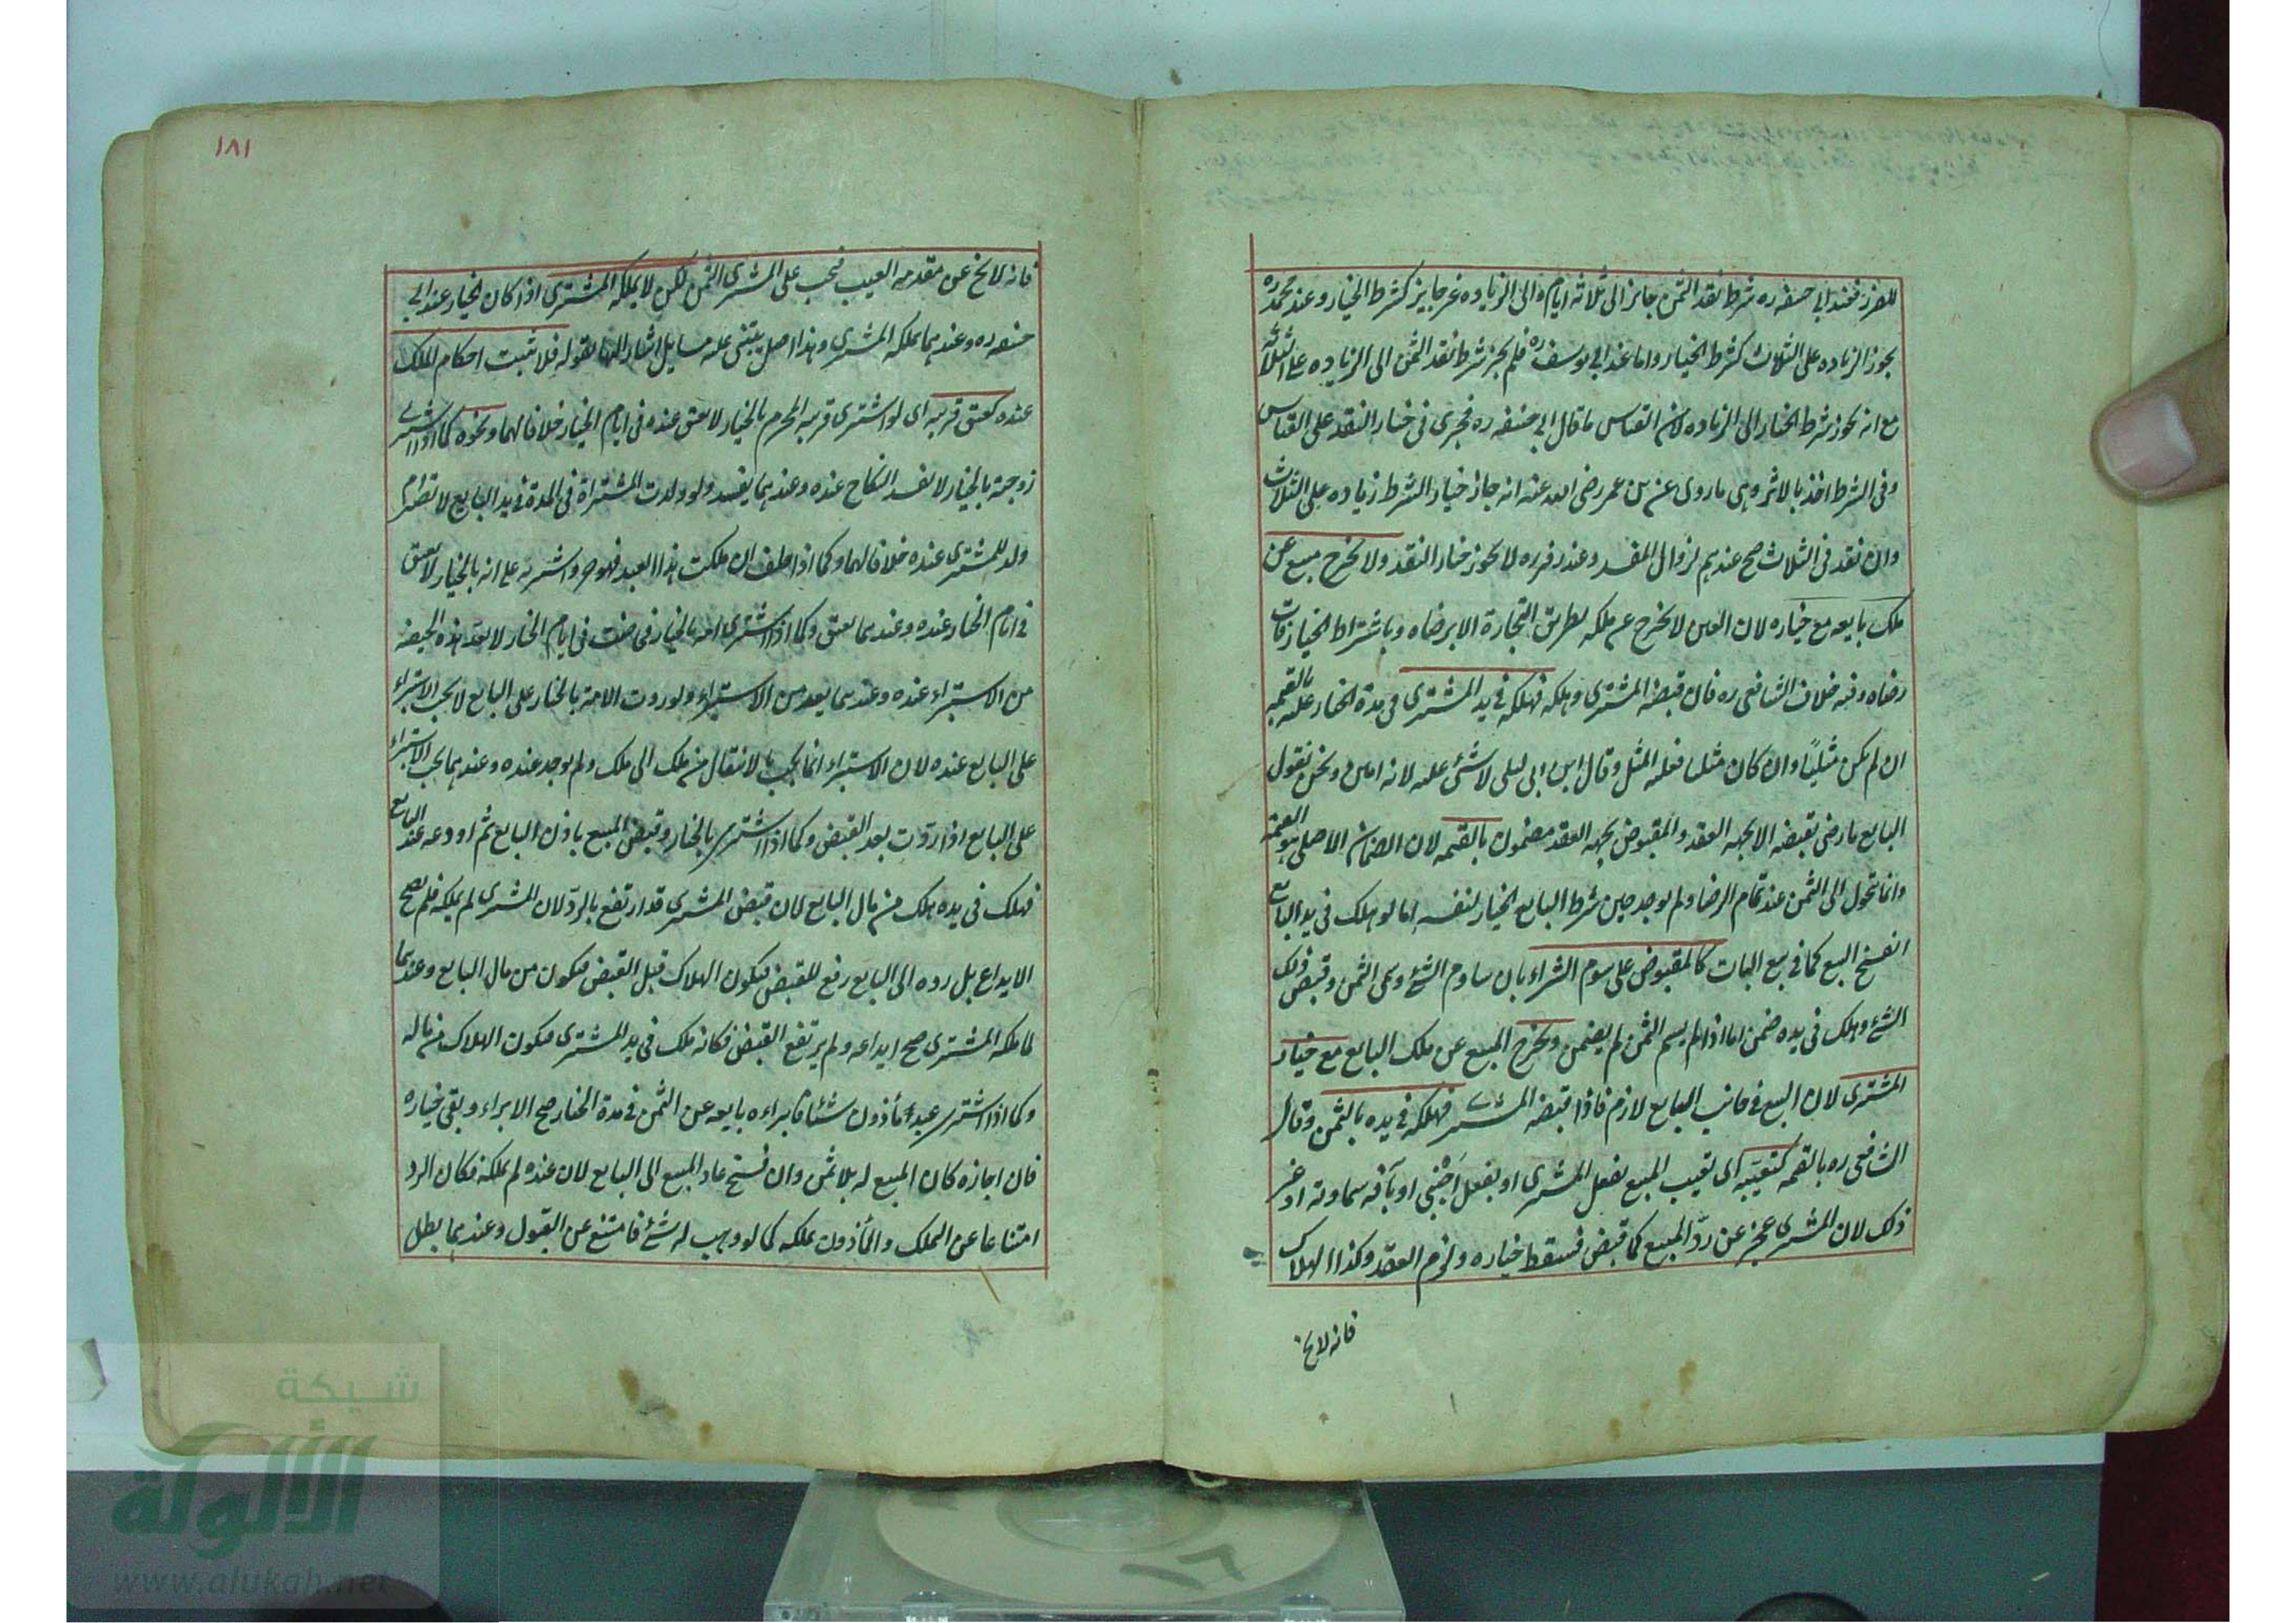 للضرر فعند ابي حنيفه ره شرط نقد الثمن جائز الى ثلاثه ايام والى الزياده غير جايز كشرط الخيار وعند محمد ره
يجوز الزياده على الثلاث كشرط الخيار واما عند ابي يوسف ره فلم يجز شرط نقد الثمن الى الزياده على الثلثة
مع انه يجوز شرط الخيار الى الزياده لان القياس ما قال ابي حنيفه ره فجرى في خيار النقد على القياس
وفى الشرط اخذ بالاثر وهى ما روى عن بن عمر رضى الله عنه انه جاز خيار الشرط زياده على الثلاث
وان نقد فى الثلاث صح عندهم لزوال المفسد وعند زفر ره لا يجوز خيار النقد ولا يخرج مبيع عن
ملك بايعه مع خياره لان العين لا يخرج عن ملكه بطريق التجارة الا برضاه وباشتراط الخيار فات
رضاه وفيه خلاف الشافعى ره فان قبضه المشترى وهلكه فهلكه فى يد المشترى فى مدة الخيار عليه بالقيمه
ان لم يكن مثليا وان كان مثليا فعليه المثل وقال ابن ابى ليلى لا شئ عليه لانه امين ونحن نقول
البايع ما رضى بقبضه الا بجهه العقد والمقبوض بجهه العقد مضمون بالقيمه لان الضمان الاصلى هو القيمه
وانما تحول الى الثمن عند تمام الرضا ولم يوجد حين شرط البايع الخيار لنفسه اما لو هلك فى يد البايع
انفسخ البيع كما فى بيع البات كالمقبوض على سوم الشراء بان ساوم الشئ وسمى الثمن وقبض ذلك
الشئ وهلك فى يده ضمن اما اذا لم يسم الثمن لم يضمن ويخرج المبيع عن ملك البايع مع خيار
المشترى لان البيع فى جانب البايع لازم فاذا قبضه المشترى فهلكه فى يده بالثمن وقال
الشافعى ره بالقيمه كتعيبه اى تعيب المبيع بفعل المشترى او بفعل اجنبى او بآفه سماويه او غير
ذلك لان المشترى عجز عن رد المبيع كما قبض فسقط خياره ولزم العقد وكذا الهلاك
فانه لا يخ
١٨١
فانه لا يخ عن مقدمه العيب فيجب على المشترى الثمن لكن لا يملكه المشترى اذا كان الخيار عند ابى
حنيفه ره وعندهما يملكه المشترى وهذا اصل يبتنى عليه مسايل اشار اليها بقوله فلا يثبت احكام الملك
عنده كعتق قريبه اى لو اشترى قريبه المحرم بالخيار لا يعتق عنده فى ايام الخيار خلافا لهما ونحوه كما اذا اشترى
زوجته بالخيار لا يفسد النكاح عنده وعندهما يفسد ولو ولدت المشتراة فى المدة فى يد البايع لا تصير ام
ولد للمشترى عنده خلافا لهما وكما اذا حلف ان ملكت هذا العبد فهو حر واشتريه على انه بالخيار لا يعتق
فى ايام الخيار عنده وعندهما يعتق وكما اذا اشترى امه بالخيار فحاضت فى ايام الخيار لا يعد هذه الحيضه
من الاستبراء عنده وعندهما يعد من الاستبراء ولو ردت الامة بالخيار على البايع لا يجب الاستبراء
على البايع عنده لان الاستبراء انما يجب بالانتقال من ملك الى ملك ولم يوجد عنده وعندهما يجب الاستبراء
على البايع اذا ردت بعد القبض وكما اذا اشترى بالخيار وقبض المبيع باذن البايع ثم اودعه عند البايع
فهلك فى يده هلك من مال البايع لان قبض المشترى قد ارتفع بالرد لان المشترى لم يملكه فلم يصح
الايداع بل رده الى البايع رفع للقبض فيكون الهلاك قبل القبض فيكون من مال البايع وعندهما
لما ملكه المشترى صح ايداعه ولم يرتفع القبض فكانه هلك فى يد المشترى فيكون الهلاك من ماله
وكما اذا اشترى عبد مأذون شيئا فابراءه بايعه عن الثمن فى مدة الخيار صح الابراء وبقى خياره
فان اجازه كان المبيع له بلا ثمن وان فسخ عاد المبيع الى البايع لان عنده لم يملكه فكان الرد
امتناعا عن التملك والمأذون يملكه كما لو وهب له شئ فامتنع عن القبول وعندهما بطل
شبكة
الألوكة
www.alukah.net